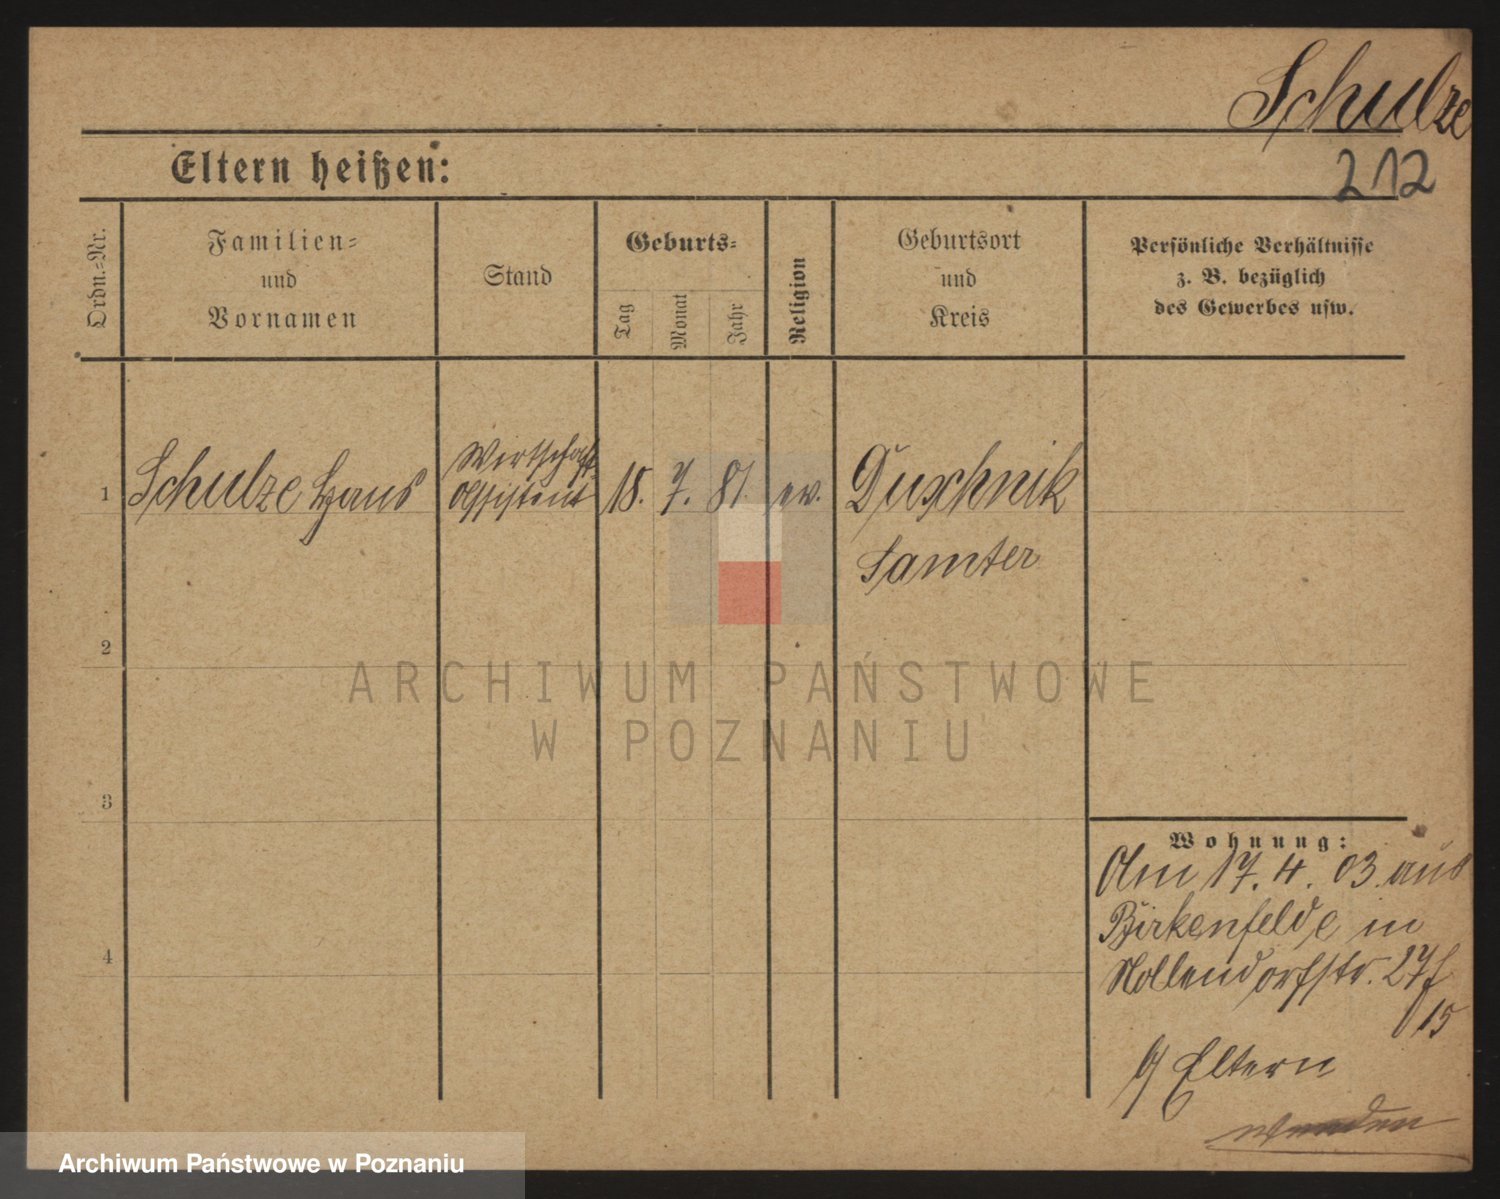 Schulze
212
Eltern heißen:
Ordn.-Nr.
Familien-
und
Vornamen
Stand
Geburts-
Tag
Monat
Jahr
Religion
Geburtsort
und
Kreis
Persönliche Verhältnisse
z. B. bezüglich
des Gewerbes usw.
1 Schulze Hans Wirtschaft- Assistent 18. 7. 81. ev. Duschnik
Samter
2
ARCHIWUM PAŃSTWOWE
W POZNANIU
3
Wohnung:
Am 17. 4. 03. aus
Birkenfelde in
Nollendorfstr. 27
15
4
Eltern
wenden
Archiwum Państwowe w Poznaniu